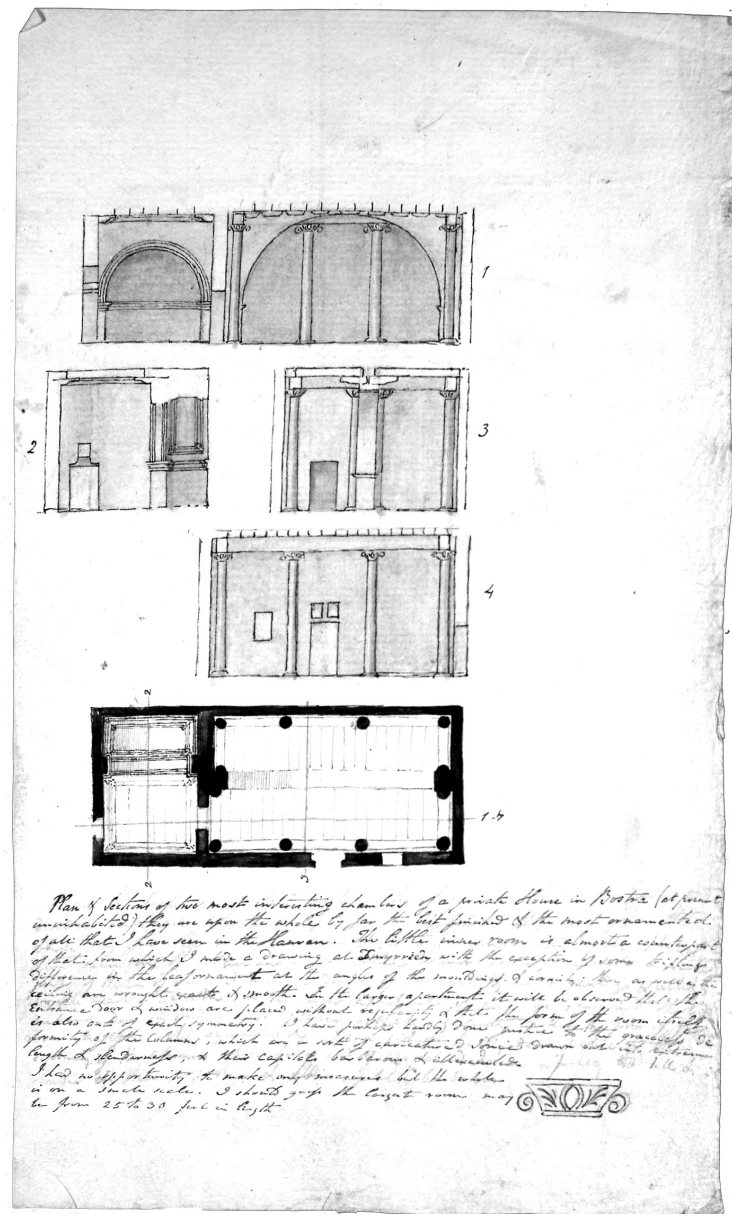 1
2
3
4
2
1-4
2
3
Plan & Sections of two most interesting chambers of a private House in Bostra (at present
uninhabited) they are upon the whole by far the best finished & the most ornamented
of all that I have seen in the Hauran. The little inner room is almost a counterpart
of that from which I made a drawing at with the exception of some trifling
difference in the leaf ornament at the angles of the mouldings & cornice; as well as the
ceiling are wrought & smooth. In the larger apartment it will be observed that the
Entrance door & window are placed without regularity & that the form of the room itself
is also out of exact symmetry. I have perhaps hardly done justice to the graceless de
formity of the Columns, which are a sort of caricatured Ionic drawn out into extreme
length & slenderness & their capitals barbarous &
I had no opportunity to make any measures but the whole
is on a small scale. I should guess the largest room may
be from 25 to 30 feet in length